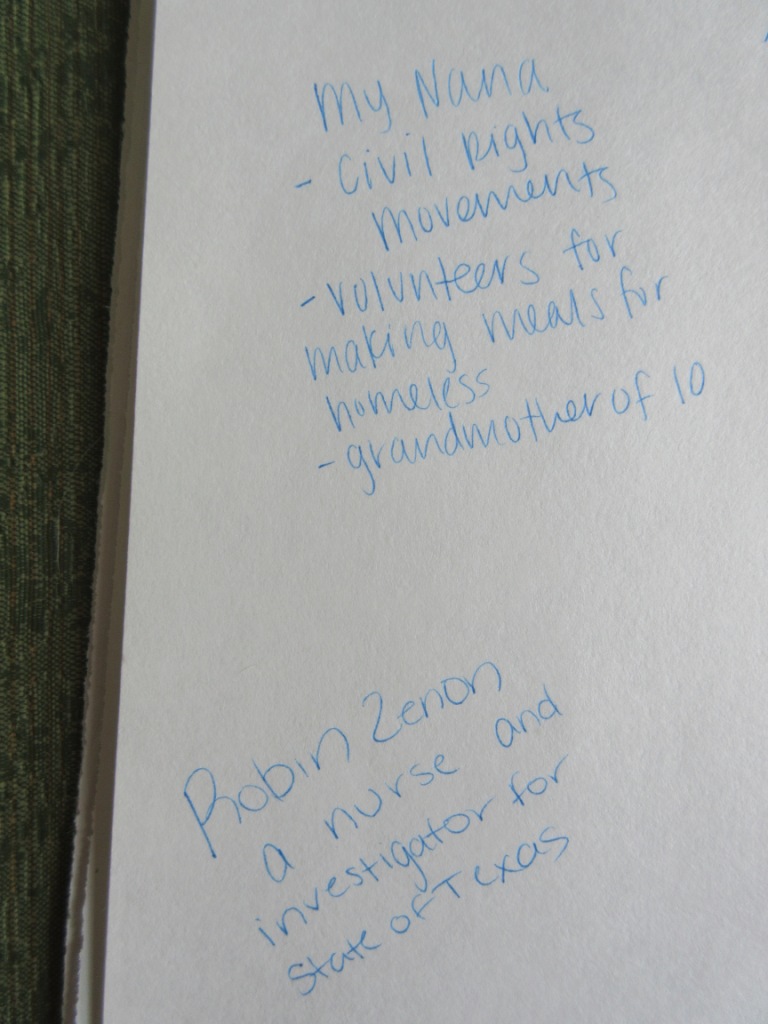 My Nana
- Civil Rights
movements
- volunteers for
making meals for
homeless
- grandmother of 10
Robin Zenon
a nurse and
investigator for
State of Texas